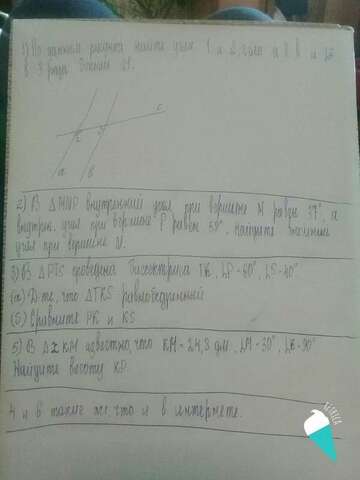 1) По данным рисунка найти углы 1 и 2, если a || b и ∠2
в 3 раза больше ∠1.
c
2
a
b
2) В △MNP внутренний угол при вершине M равен 37°, а
внутрен. угол при вершине P равен 59°. Найдите внешний
угол при вершине N.
3) В △PTS проведена биссектриса TK, ∠P-80°, ∠S-40°
(а) Д-те, что △TKS равнобедренный
(б) Сравните PK и KS
5) В △ KM известно, что KM-24,8 дм, ∠M-30°, ∠K-90°
Найдите высоту KP.
4 и 6 такие же, что и в интернете.